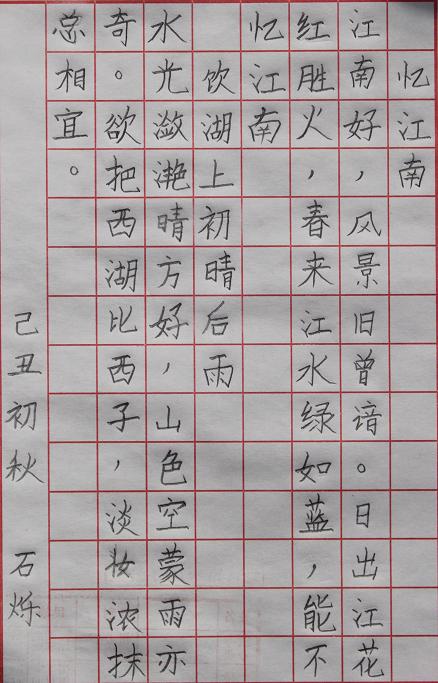 忆江南
江南好，风景旧曾谙。日出江花
红胜火，春来江水绿如蓝，能不
忆江南
饮湖上初晴后雨
水光潋滟晴方好，山色空蒙雨亦
奇。欲把西湖比西子，淡妆浓抹
总相宜。
己丑初秋 石烁